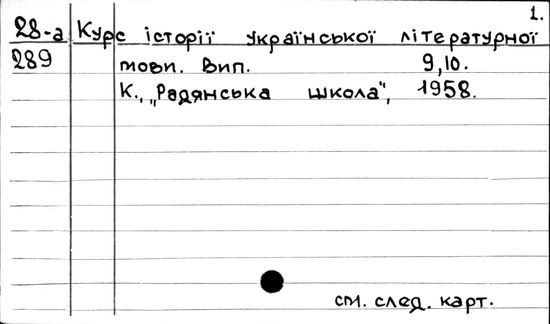 1.
28-а Курс історії української літературної
289 мови. Вип. 9,10.
К., „Радянська школа“, 1958.
см. след. карт.